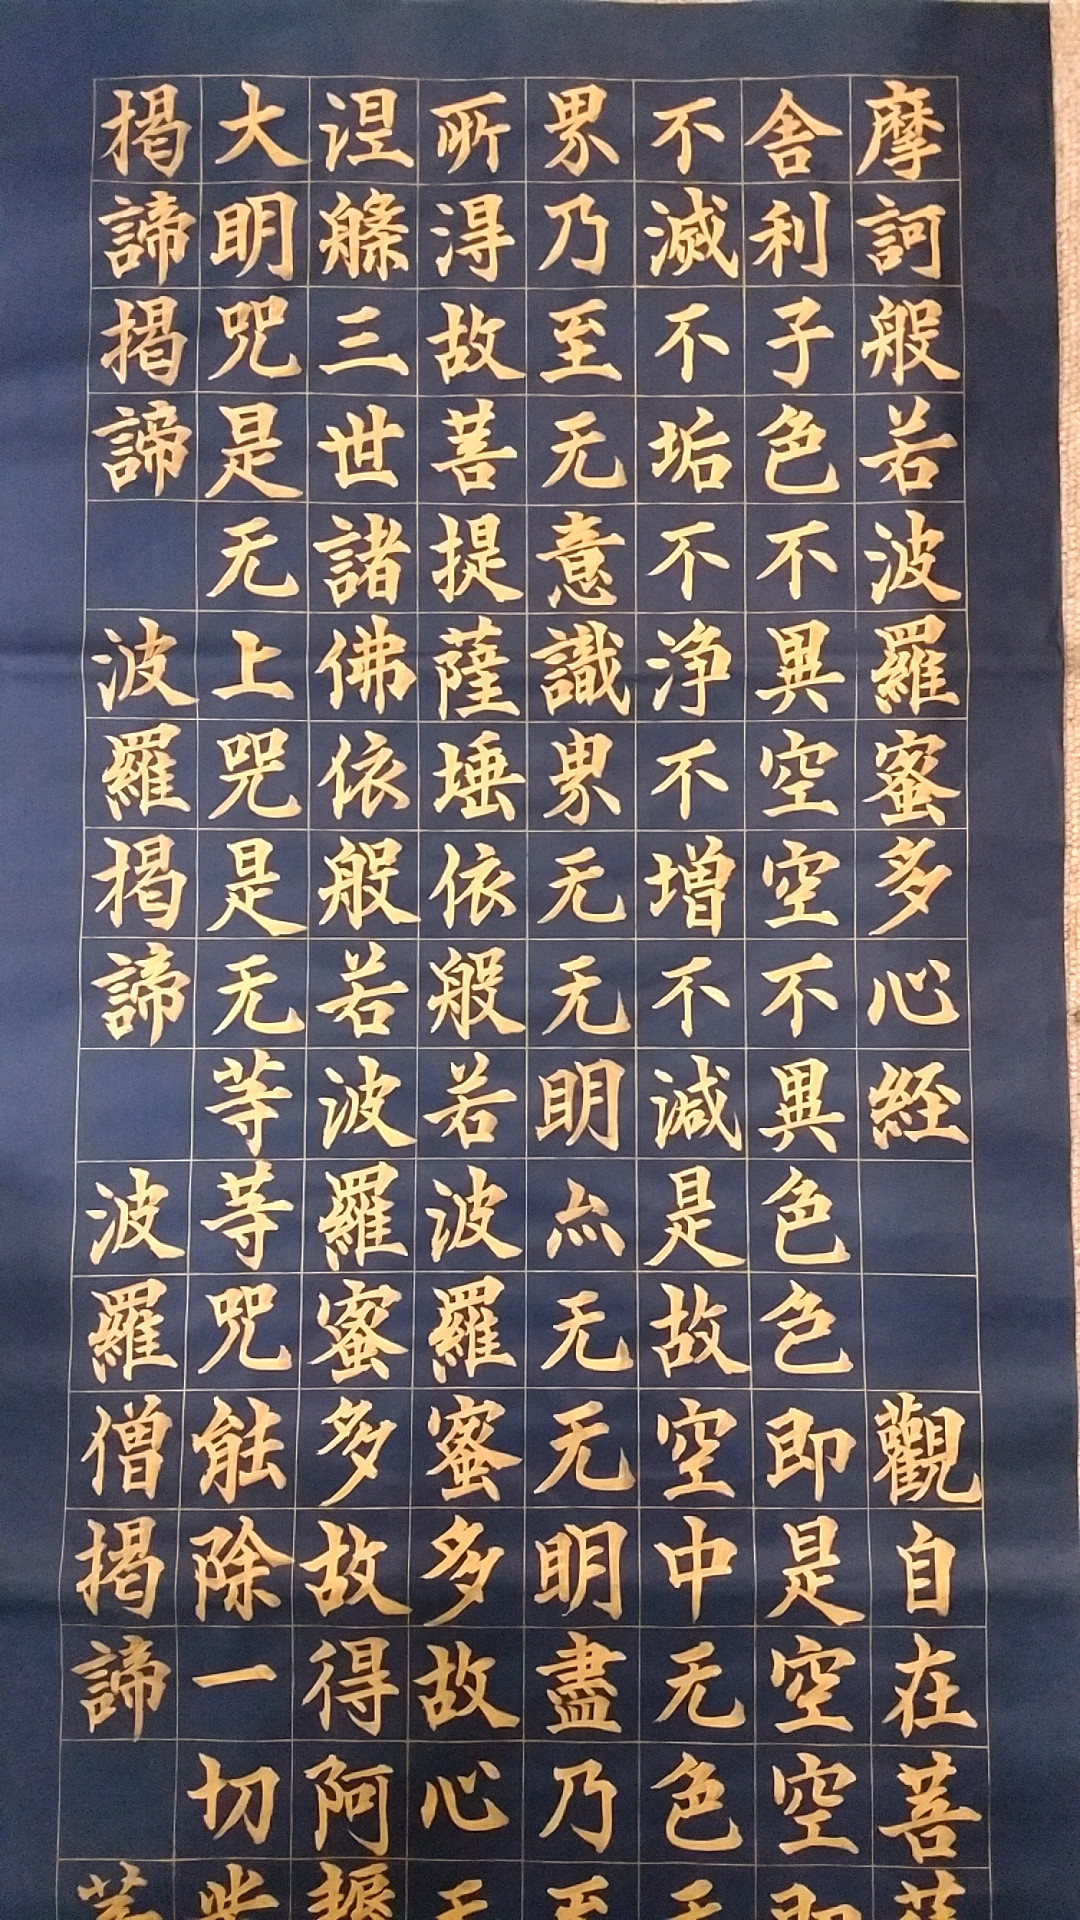 摩訶般若波羅蜜多心経 觀自在菩薩
舎利子色不異空空不異色色即是空空即
不滅不垢不浄不増不減是故空中无色无
界乃至无意識界无无明亦无无明盡乃至
所得故菩提薩埵依般若波羅蜜多故心无
涅槃三世諸佛依般若波羅蜜多故得阿耨
大明咒是无上咒是无等等咒能除一切
掲諦掲諦 波羅掲諦 波羅僧掲諦 菩